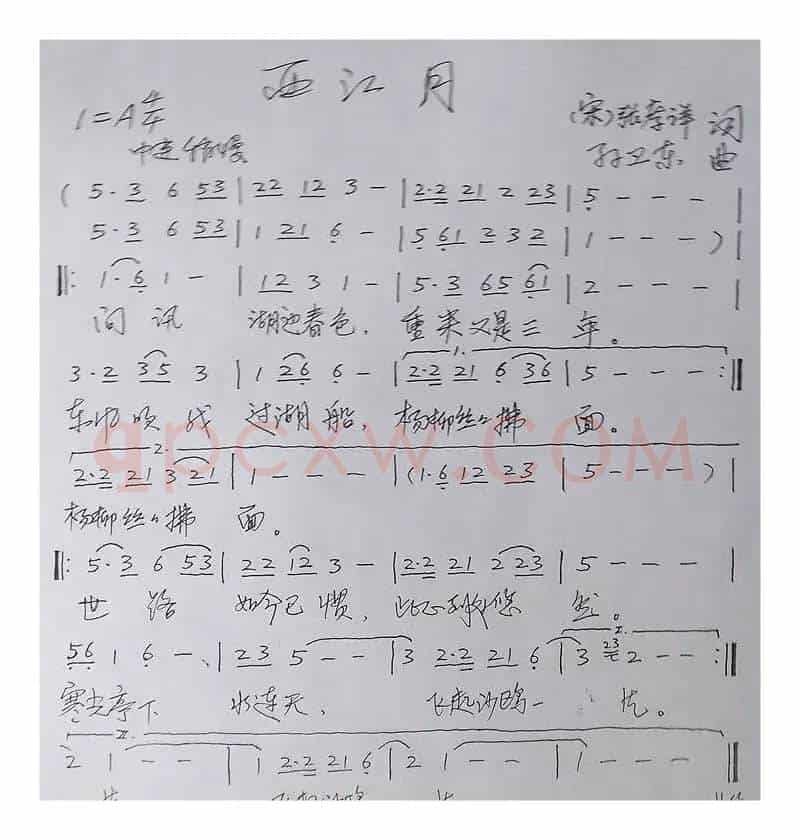 西江月
1=A 4/4
中速 稍慢
(宋)张孝祥 词
孙卫东 曲
( 5·3 6 53 | 22 12 3 - | 2·2 21 2 23 | 5 - - - |
5·3 6 53 | 1 21 6 - | 5 61 2 3 2 | 1 - - - ) |
‖: 1·6 1 - | 12 3 1 - | 5·3 65 61 | 2 - - - |
问讯 湖边春色, 重来又是三 年。
1.
3·2 35 3 | 1 26 6 - | 2·2 21 6 36 | 5 - - - :‖
东风吹我 过湖船, 杨柳丝丝拂 面。
qpcxw.com
2.
2·2 21 3 21 | 1 - - - | (1·6 12 23 | 5 - - - ) |
杨柳丝丝拂 面。
‖: 5·3 6 53 | 22 12 3 - | 2·2 21 2 23 | 5 - - - |
世路 如今已惯, 此心到处悠 然。
I.
56 1 6 - 、| 23 5 - - | 3 2·2 21 6 | 3 23 2 - - :‖
寒光亭下 水连天, 飞起沙鸥一 片。
II.
2 1 - - | 1 2·2 21 6 | 2 1 - - | 1 - - - ‖